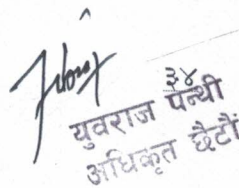 ३४
युवराज पन्थी
अधिकृत छैटौं